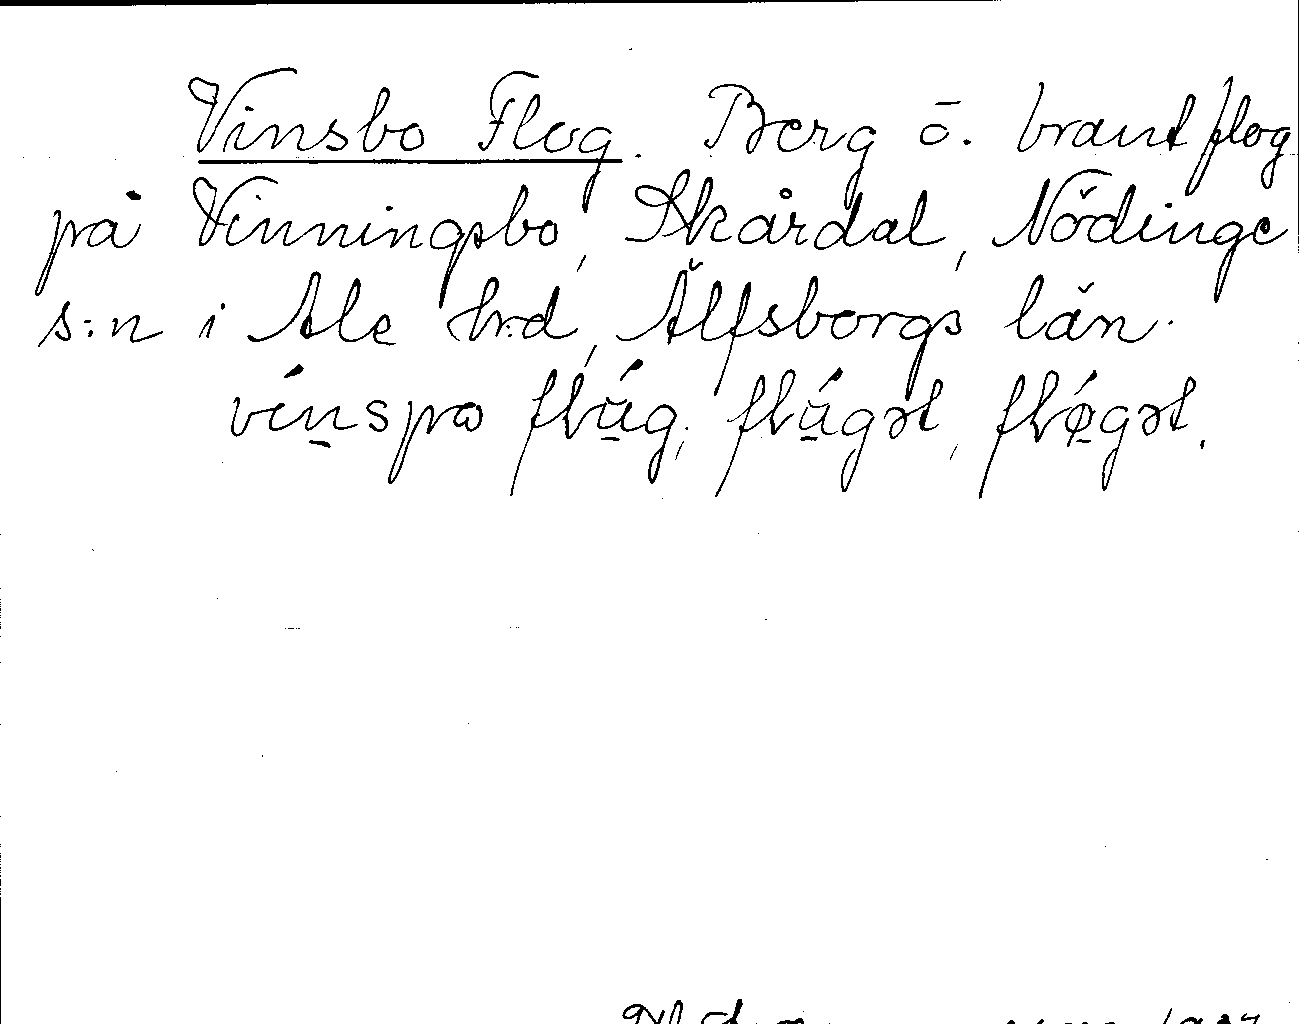 Vinsbo Flog. Berg o. brant flog
på Vinningsbo, Skårdal, Nödinge
s:n i Ale hrd, Älfsborgs län.
vínspo flug, flúgət, fløgət.